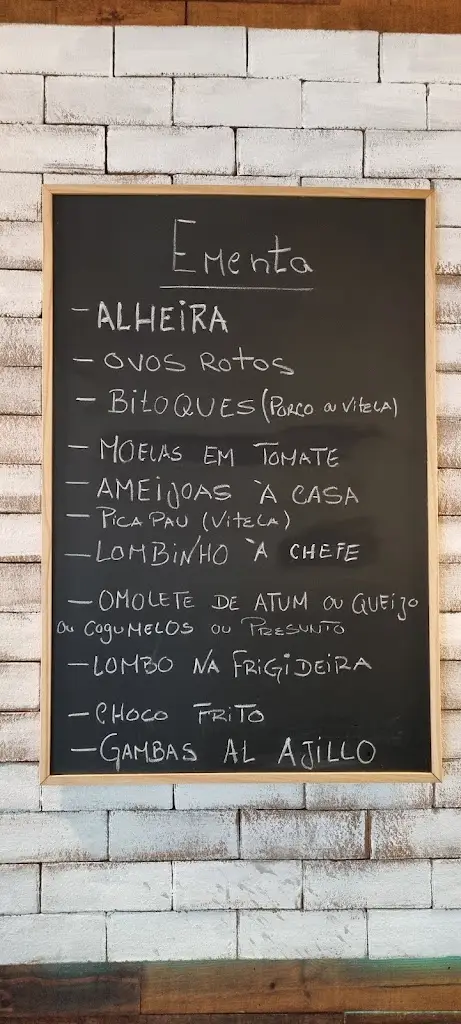 Ementa
- ALHEIRA
- OVOS ROTOS
- BITOQUES (PORCO OU VITELA)
- MOELAS EM TOMATE
- AMEIJOAS À CASA
- PICA PAU (VITELA)
- LOMBINHO À CHEFE
- OMOLETE DE ATUM OU QUEIJO
OU COGUMELOS OU PRESUNTO
- LOMBO NA FRIGIDEIRA
- CHOCO FRITO
- GAMBAS AL AJILLO